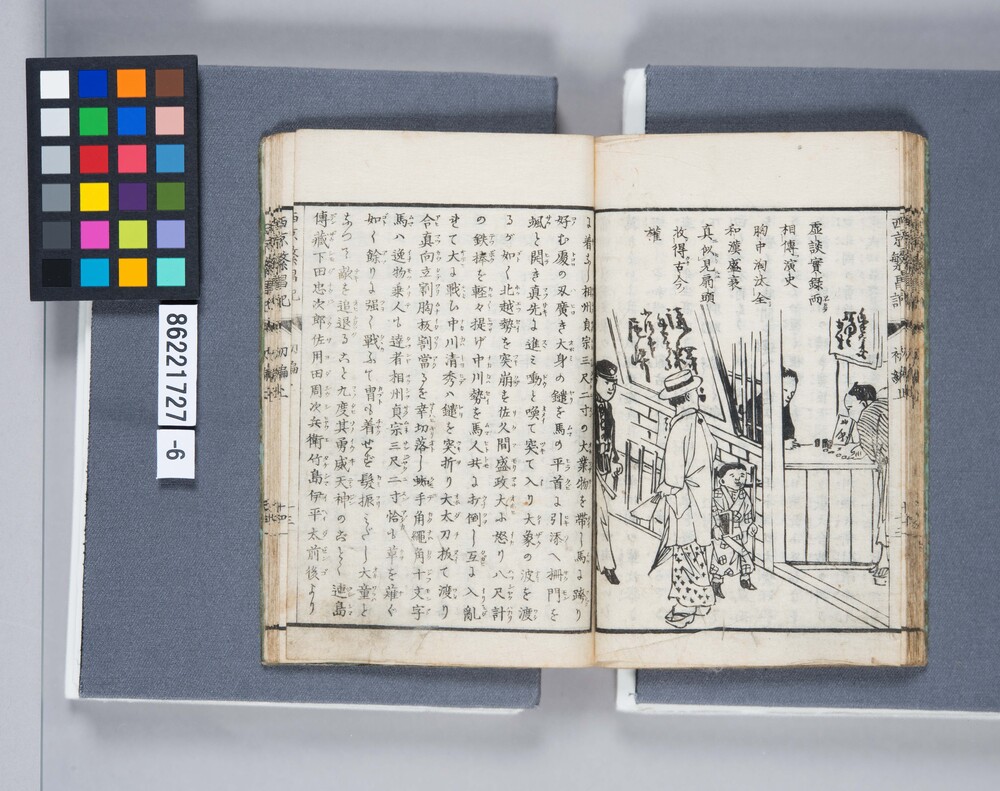 西京繁昌記
初編上
虚談實録両
相傳演史
胸中淘汰全
和漢盛衰
真似見扇頭
故得古今
權
に着なし相州貞宗三尺二寸の大業物を帯し馬に跨り
好む處の刄廣き大身の鑓を馬の平首に引添へ柵門を
颯と開き真先に進み動と喚て突て入り大象の波を渡
るが如く北越勢を突崩を佐久間盛政大に怒り八尺計
の鉄捧を軽々提げ中川勢を馬人共にお倒し互に入亂
せて大に戰ひ中川清秀ハ鑓を突折り大太刀抜て渡り
合真向立割胸板割當るを幸切落し蜘手角縄角十文字
馬ハ逸物乗人も達者相州貞宗三尺二寸恰も草を薙ぐ
如く餘りに強く戰ふて冑も着せず髪振みだし大童と
なつて敵を追退ること九度其勇威天神のごとく
傳藏下田忠次郎佐用田周次兵衛竹島伊平太前後より
西京繁昌記
初編
86221727
-6